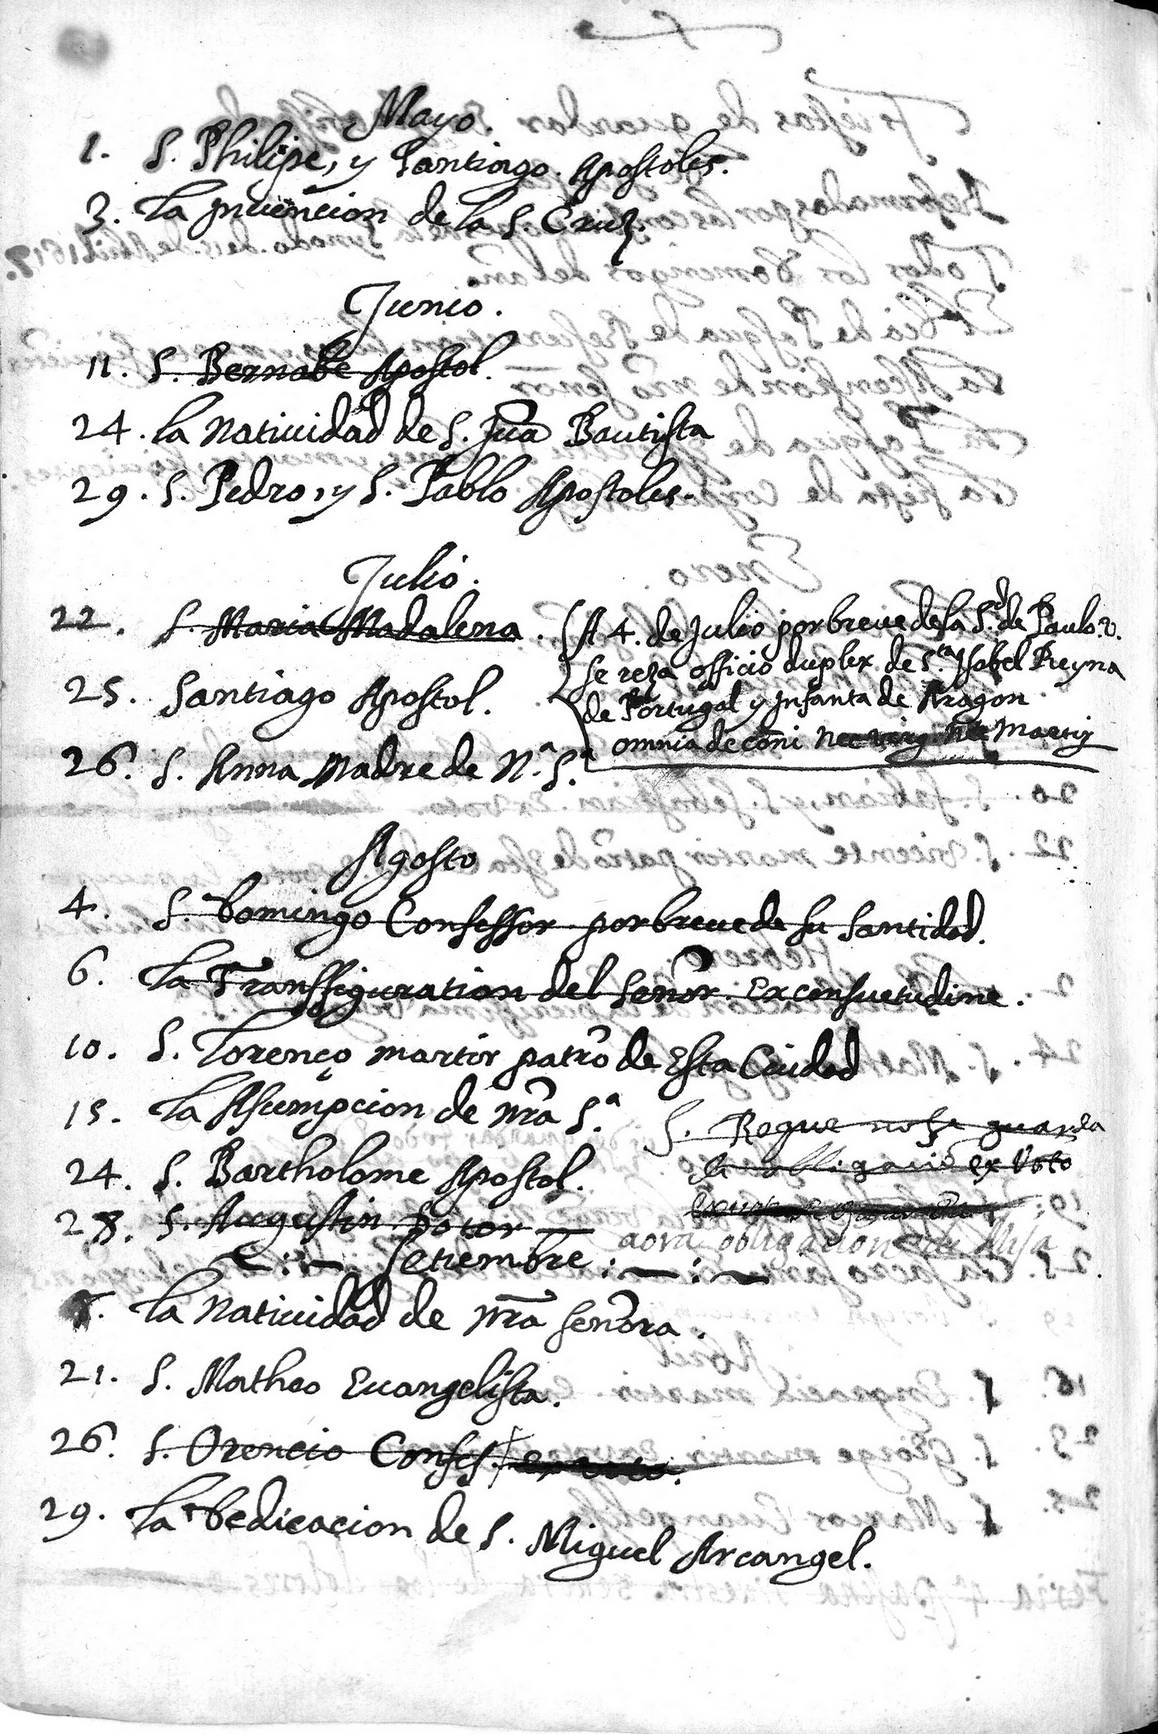 Mayo.
1. S. Philipe, y Santiago Apostoles.
3. La jnuencion de la S. Cruz.
Junio.
11. S. Bernabe Apostol.
24. La Natiuidad de S. Juã Bautista
29. S. Pedro, y S. Pablo Apostoles.
Julio.
22. S. Maria Madalena.
25. Santiago Apostol.
26. S. Anna Madre de N.ª S.ª
A 4. de Julio por breue de la S.d de Paulo. V.
se reza officio duplex de S.ta Ysabel Reyna
de Portugal y jnfanta de Aragon
omnia de cõni nec virg. nec
Agosto
4. S. Domingo Confessor por breue de su Santidad.
6. La Transfiguration del Señor. Ex consuetudine.
10. S. Lorenço martir patrõ de Esta Ciudad
15. La Asumpcion de nrã S.ª
S. Roque no se guarda
la obligaciõ ex voto
24. S. Bartholome Apostol.
28. S. Augustin Dotor
aora obligacion de Misa
Setiembre
8. La Natiuidad de nrã Señora.
21. S. Matheo Euangelista.
26. S. Orencio Confes. ex voto.
29. La Dedicacion de S. Miguel Arcangel.